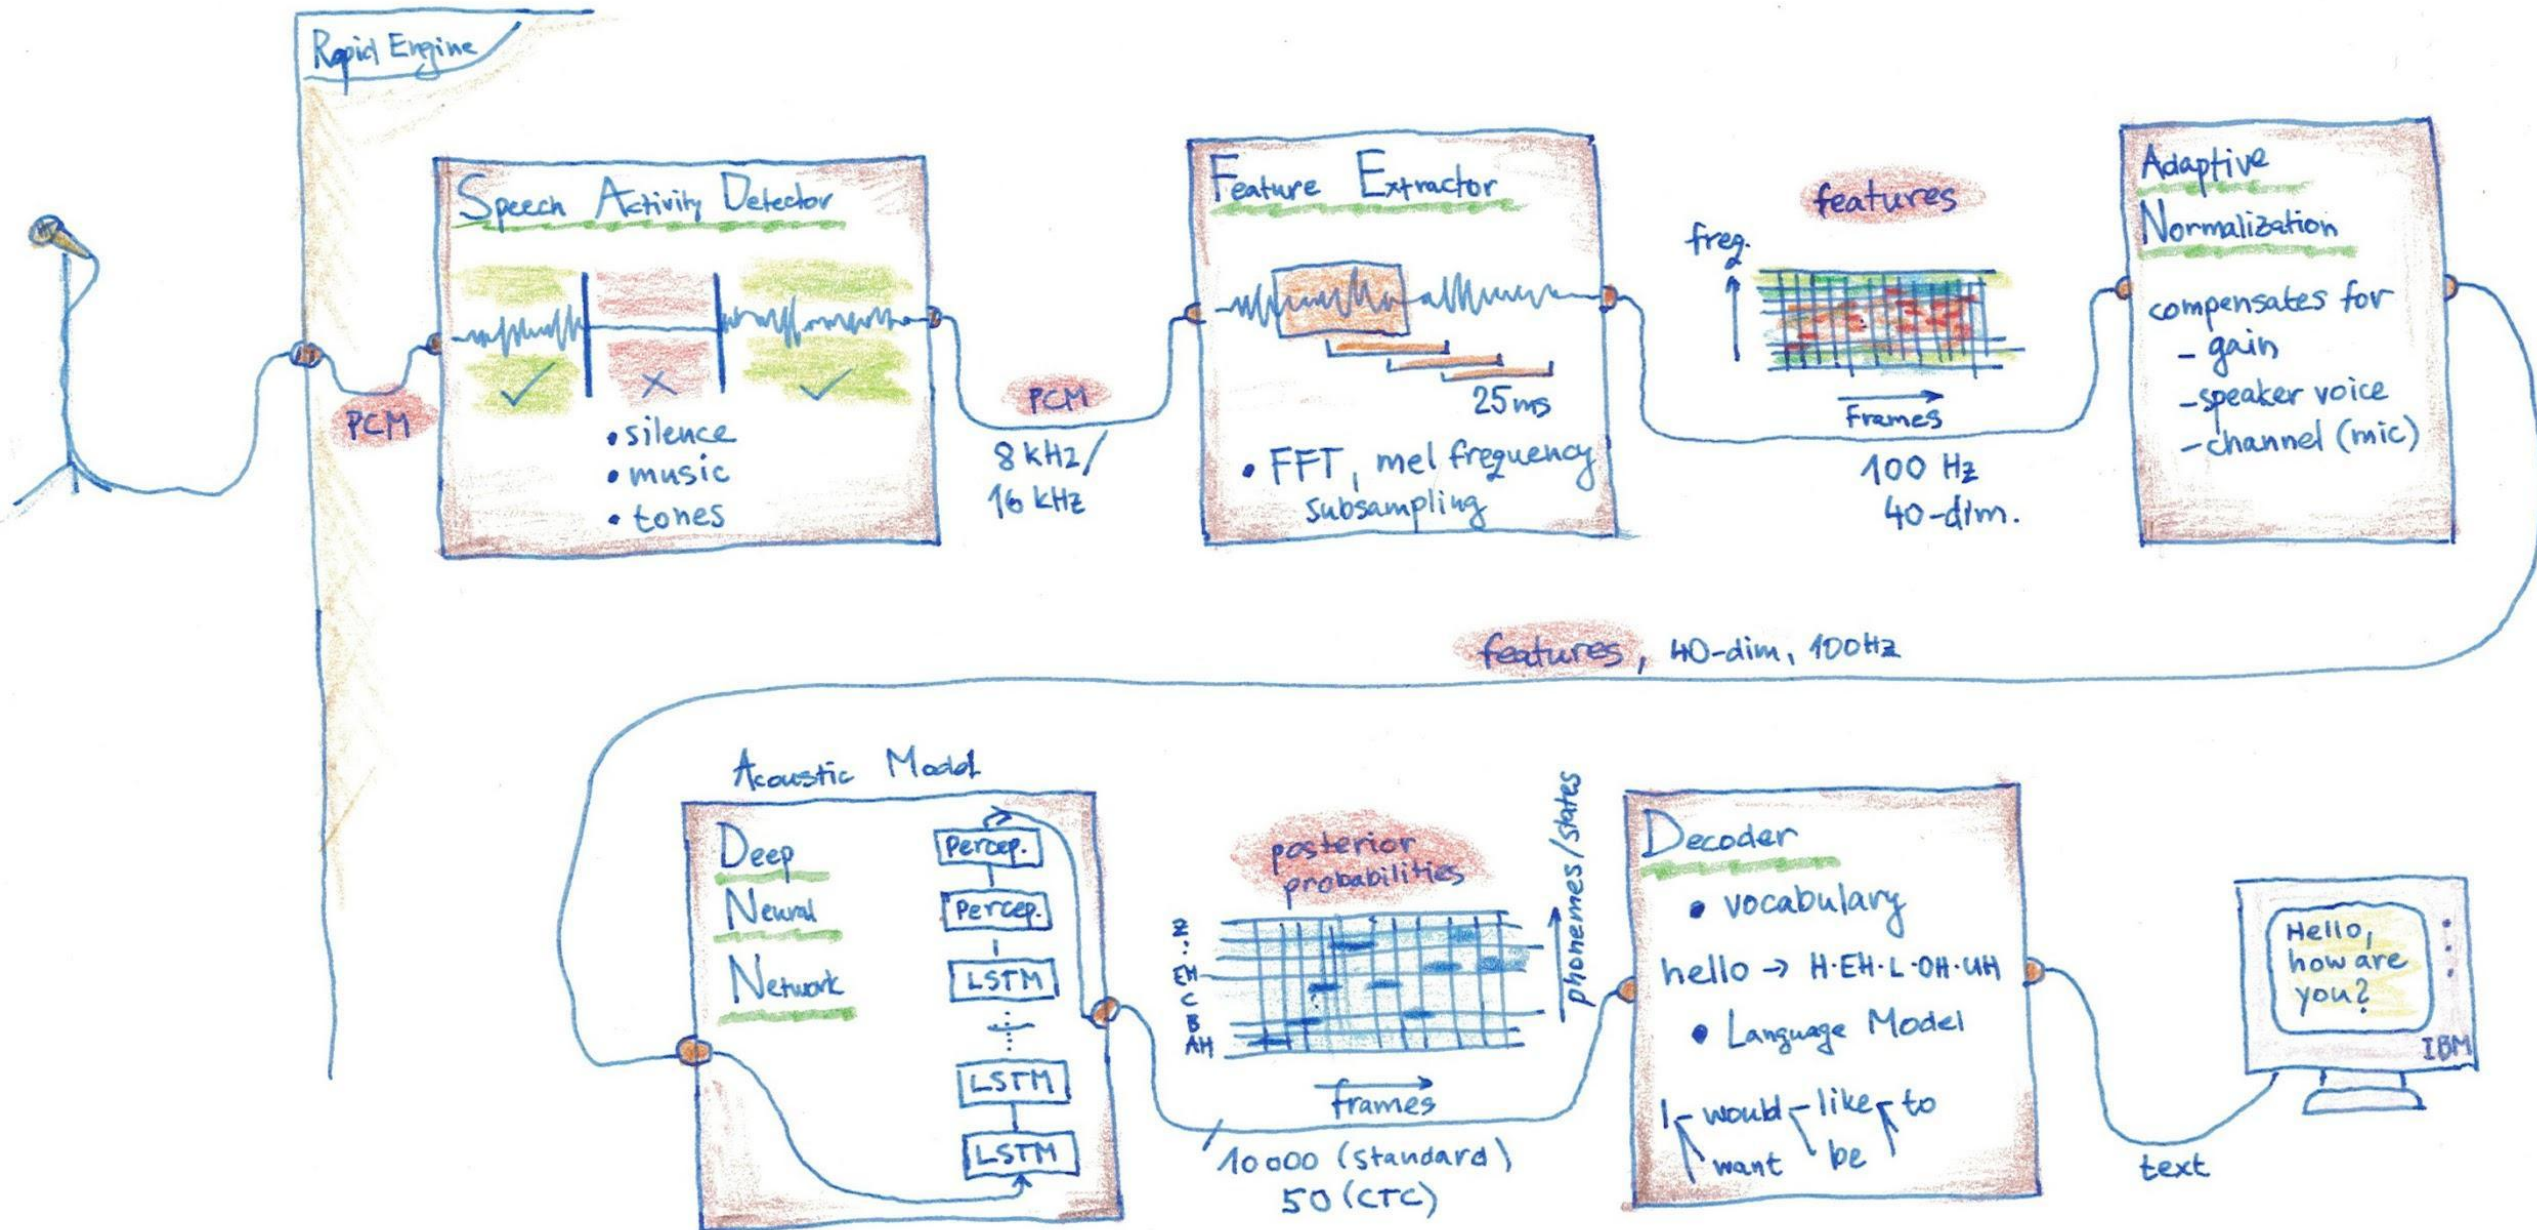 Rapid Engine
PCM
Speech Activity Detector
• silence
• music
• tones
PCM
8 kHz/
16 kHz
Feature Extractor
25ms
• FFT, mel frequency
subsampling
features
freq.
Frames
100 Hz
40-dim.
Adaptive
Normalization
compensates for
- gain
- speaker voice
- channel (mic)
features, 40-dim, 100Hz
Acoustic Model
Deep
Neural
Network
Percep.
Percep.
LSTM
LSTM
LSTM
posterior
probabilities
phonemes/states
Z
:
EH
C
B
AH
frames
10000 (standard)
50 (CTC)
Decoder
• vocabulary
hello → H·EH·L·OH·UH
• Language Model
I would like to
want be
text
Hello,
how are
you?
IBM